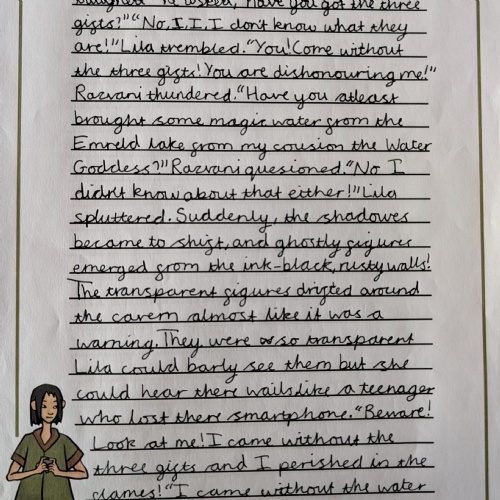 laughed he asked, have you got the three
gifts?" "No, I, I, I don't know what they
are!" Lila trembled. "You! Come without
the three gifts! You are dishonouring me!"
Razvani thundered. "Have you atleast
brought some magic water from the
Emreld lake from my cousion the Water
Goddess?" Razvani quesioned. "No I
didn't know about that either!" Lila
spluttered. Suddenly, the shadowes
became to shift, and ghostly figures
emerged from the ink-black, rusty walls!
The transparent figures drifted around
the cavern almost like it was a
warning. They were so transparent
Lila could barly see them but she
could hear there wails like a teenager
who lost there smartphone. "Beware!
Look at me! I came without the
three gifts and I perished in the
flames!" "I came without the water